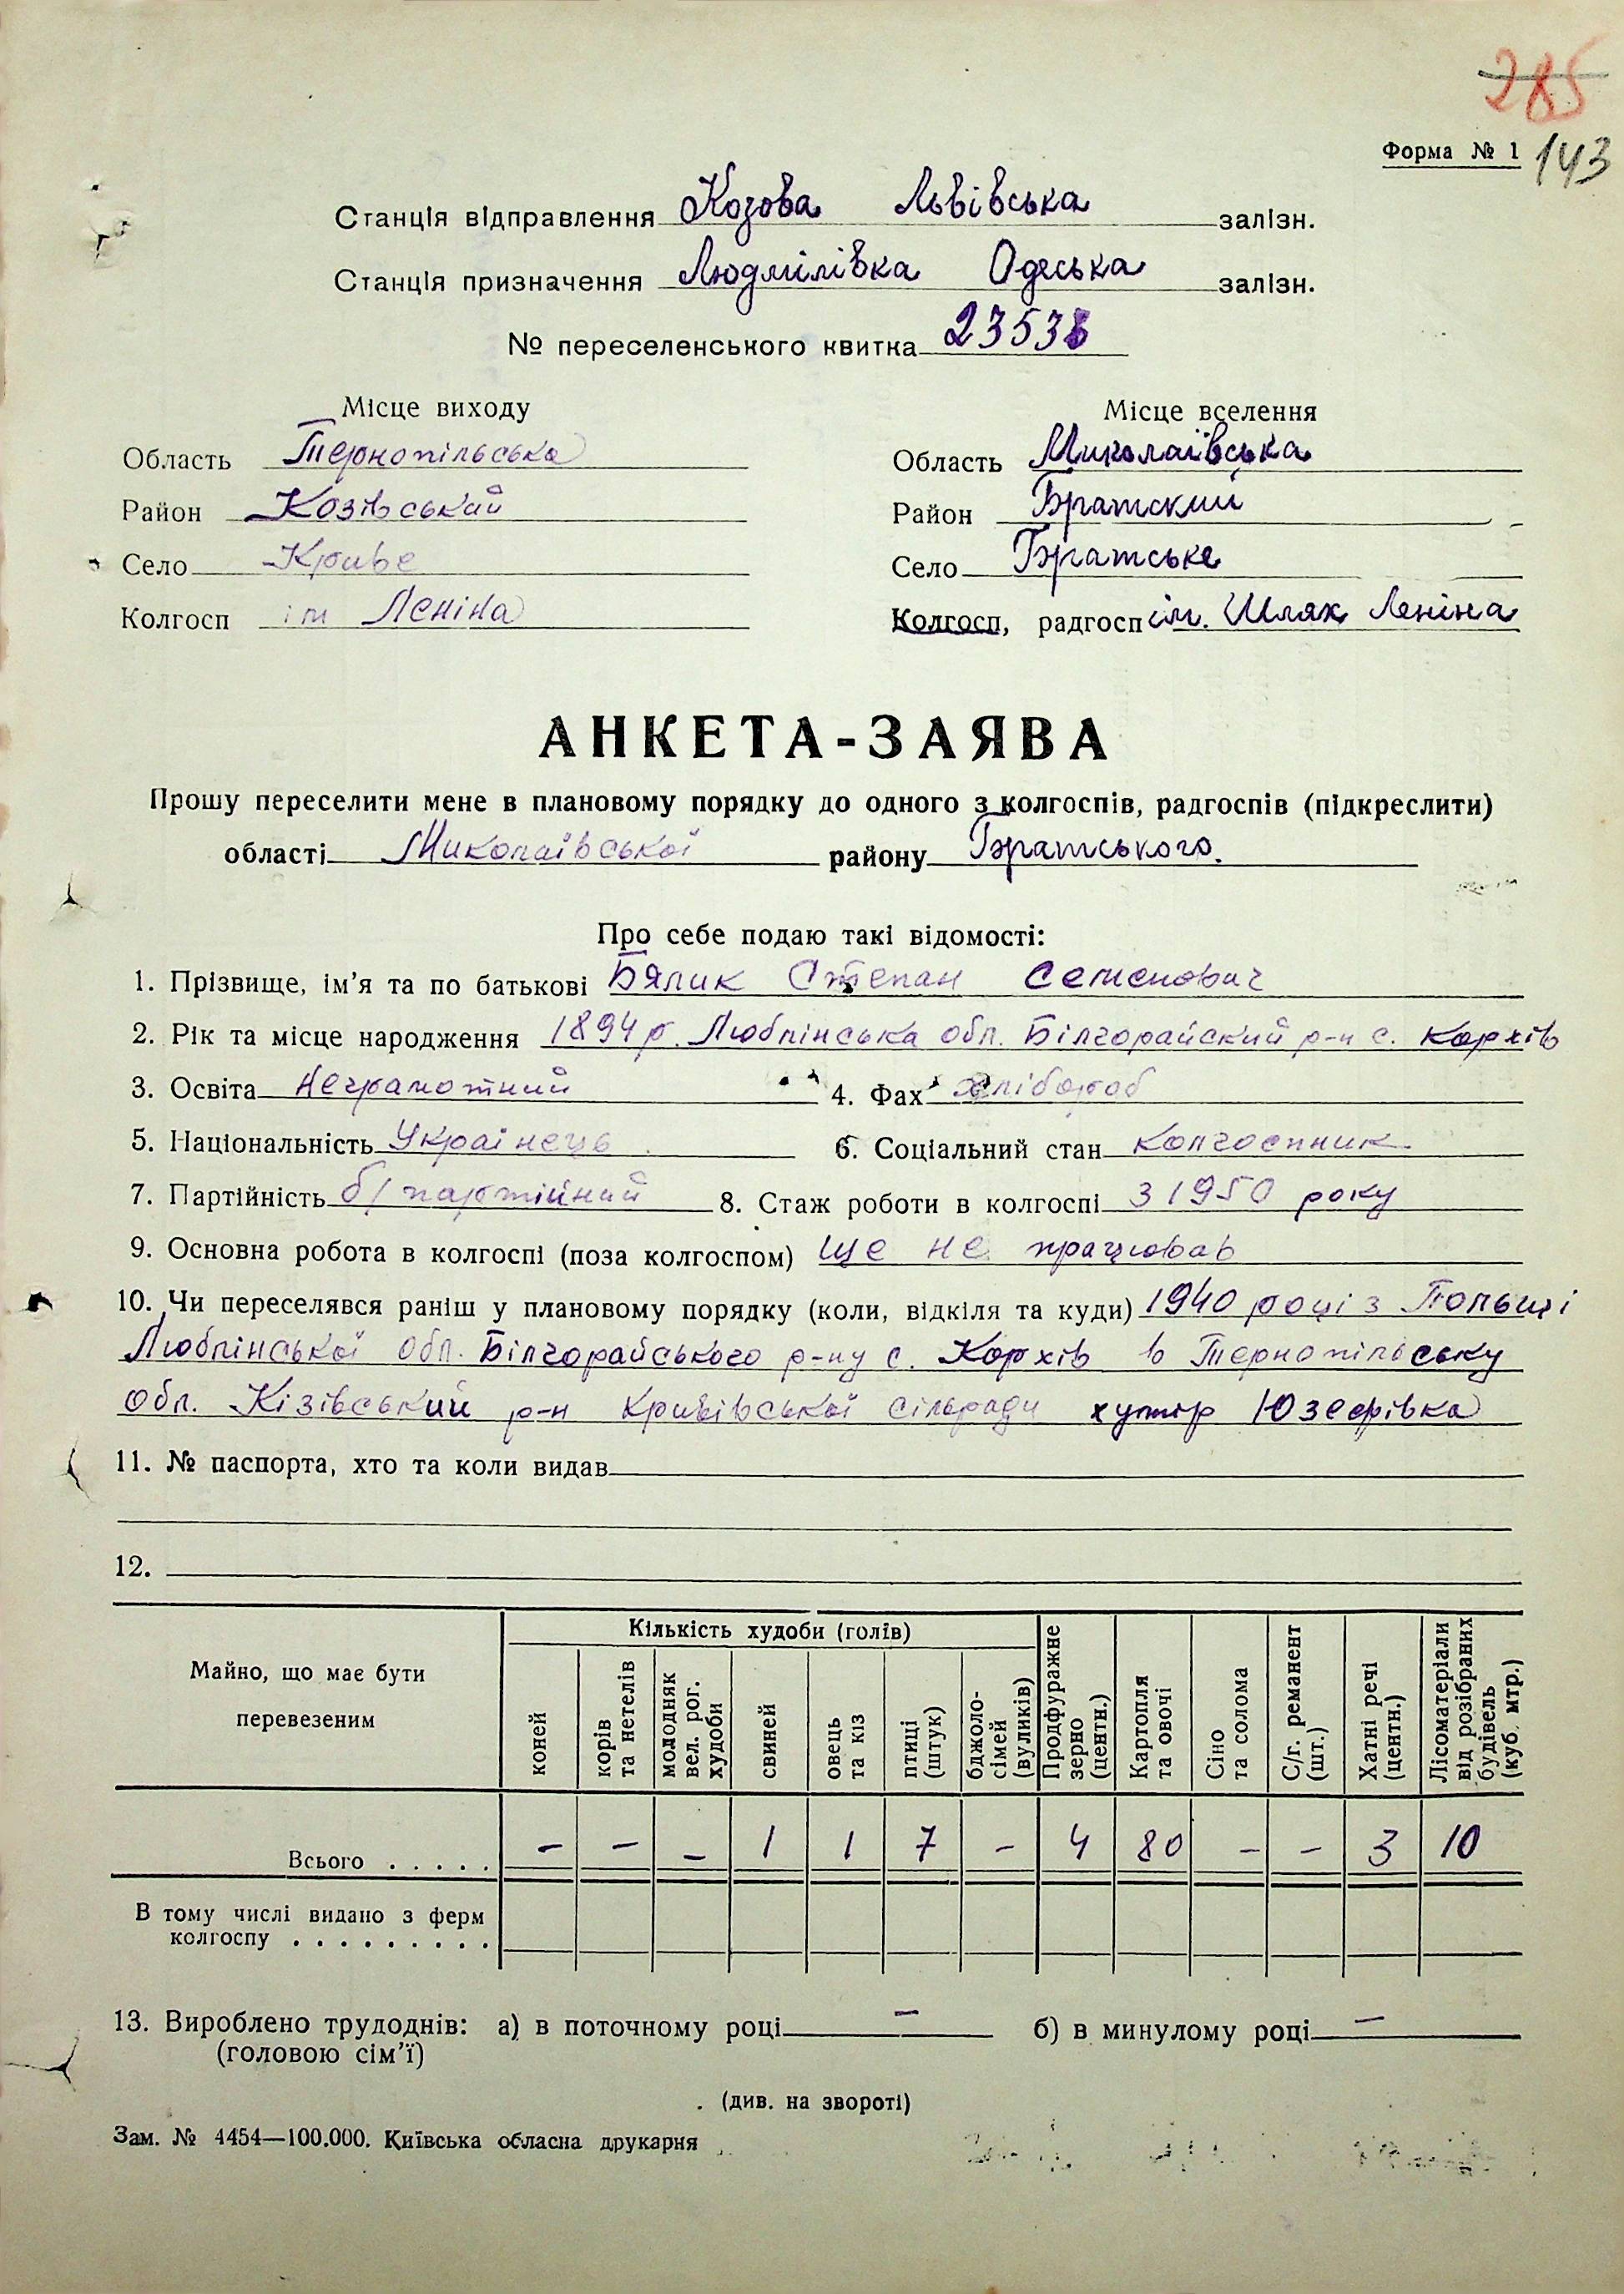 285
Форма № 1 143
Станція відправлення Козова Львівська залізн.
Станція призначення Людмілівка Одеська залізн.
№ переселенського квитка 23538
Місце виходу
Місце вселення
Область Тернопільська
Область Миколаївська
Район Козівський
Район Братский
Село Криве
Село Братське
Колгосп ім Леніна
Колгосп, радгосп ім. Шлях Леніна
АНКЕТА-ЗАЯВА
Прошу переселити мене в плановому порядку до одного з колгоспів, радгоспів (підкреслити)
області Миколаївської району Братського.
Про себе подаю такі відомості:
1. Прізвище, ім'я та по батькові Бялик Степан Семенович
2. Рік та місце народження 1894 р. Люблінська обл. Білгорайский р-н с. Корхів
3. Освіта Неграмотний 4. Фах хлібороб
5. Національність Українець 6. Соціальний стан колгоспник
7. Партійність б/партійний 8. Стаж роботи в колгоспі з 1950 року
9. Основна робота в колгоспі (поза колгоспом) ще не працював
10. Чи переселявся раніш у плановому порядку (коли, відкіля та куди) 1940 році з Польщі
Люблінської обл. Білгорайського р-ну с. Корхів в Тернопільську
обл. Кізівський р-н Кривівської сільради хутір Юзефівка
11. № паспорта, хто та коли видав
12.
Майно, що має бути перевезеним
Кількість худоби (голів)
коней
корів та нетелів
молодняк вел. рог. худоби
свиней
овець та кіз
птиці (штук)
бджоло-сімей (вуликів)
Продфуражне зерно (центн.)
Картопля та овочі
Сіно та солома
С/г. реманент (шт.)
Хатні речі (центн.)
Лісоматеріали від розібраних будівель (куб. мтр.)
Всього . . . . . – – – 1 1 7 – 4 80 – – 3 10
В тому числі видано з ферм
колгоспу . . . . . . . . .
13. Вироблено трудоднів: а) в поточному році – б) в минулому році –
(головою сім'ї)
(див. на звороті)
Зам. № 4454—100.000. Київська обласна друкарня